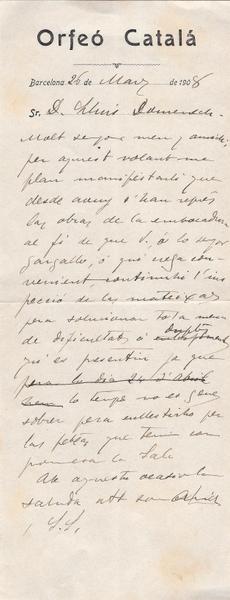 Orfeó Catalá
Barcelona 26 de Mars de 1908
Sr. D. Lluis Domenech
Molt senyor meu y amich:
per aquest volant me
plau manifestarli que
desde avuy s'han reprès
las obras de la embocadura
al fi de que V. ó lo senyor
Gargallo, ó qui crega con-
venient, continuhi l'ins-
pecció de las mateixas
pera solucionar tota mena
de dificultats ó duptes
qu'es presentin ja que
pera lo dia 24 d'Abril
lo temps no es gens
sobrer pera enllestirho per
las festas que tenim com
promesa la Sala
Ab aquesta ocasió lo
saluda att. son
S. S.